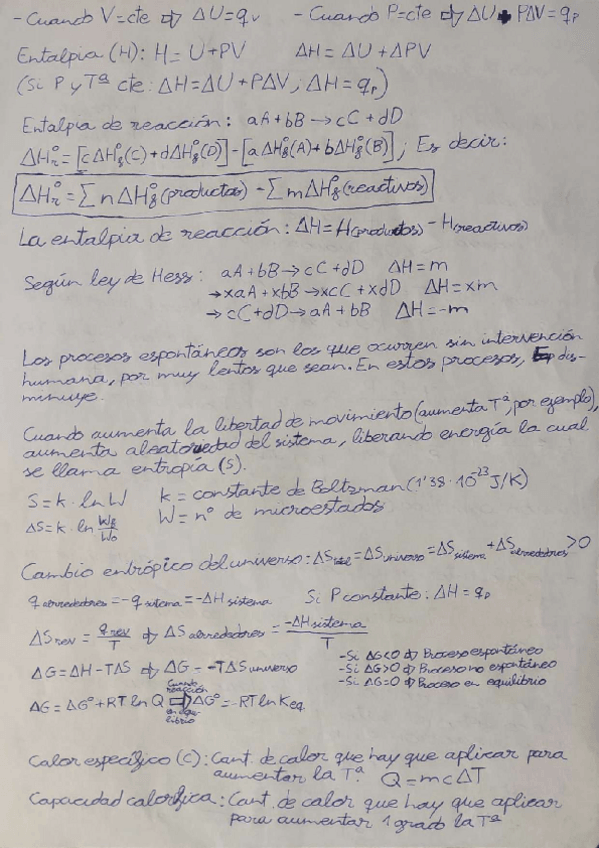 - Cuando V=cte ⇒ ΔU=qᵥ - Cuando P=cte ⇒ ΔU + PΔV = qₚ
Entalpía (H): H = U+PV ΔH = ΔU + ΔPV
(Si P y Tª cte: ΔH=ΔU+PΔV; ΔH=qₚ)
Entalpía de reacción: aA+bB → cC+dD
ΔHr° = [cΔHf°(C)+dΔHf°(D)] - [aΔHf°(A)+bΔHf°(B)]; Es decir:
ΔHr° = Σ nΔHf°(productos) - Σ mΔHf°(reactivos)
La entalpía de reacción: ΔH=H(productos) - H(reactivos)
Según ley de Hess: aA+bB → cC+dD ΔH=m
→ xaA+xbB → xcC+xdD ΔH=xm
→ cC+dD → aA+bB ΔH=-m
Los procesos espontáneos son los que ocurren sin intervención
humana, por muy lentos que sean. En estos procesos, Ep dis-
minuye.
Cuando aumenta la libertad de movimiento (aumenta Tª, por ejemplo),
aumenta aleatoriedad del sistema, liberando energía la cual
se llama entropía (S).
S=k·lnW k = constante de Boltzman (1'38·10⁻²³ J/K)
ΔS=k·ln Wf/W₀ W = nº de microestados
Cambio entrópico del universo: ΔStotal=ΔSuniverso=ΔSsistema+ΔSalrededores>0
qalrededores=-qsistema=-ΔHsistema Si P constante: ΔH=qₚ
ΔSrev = qrev/T ⇒ ΔSalrededores = -ΔHsistema/T
-Si ΔG<0 ⇒ Proceso espontáneo
ΔG=ΔH-TΔS ⇒ ΔG = -TΔSuniverso -Si ΔG>0 ⇒ Proceso no espontáneo
-Si ΔG=0 ⇒ Proceso en equilibrio
ΔG=ΔG°+RTlnQ Cuando reacción en equilibrio ⇒ ΔG°=-RTlnKeq
Calor específico (c): Cant. de calor que hay que aplicar para
aumentar la Tª. Q=mcΔT
Capacidad calorífica: Cant. de calor que hay que aplicar
para aumentar 1 grado la Tª